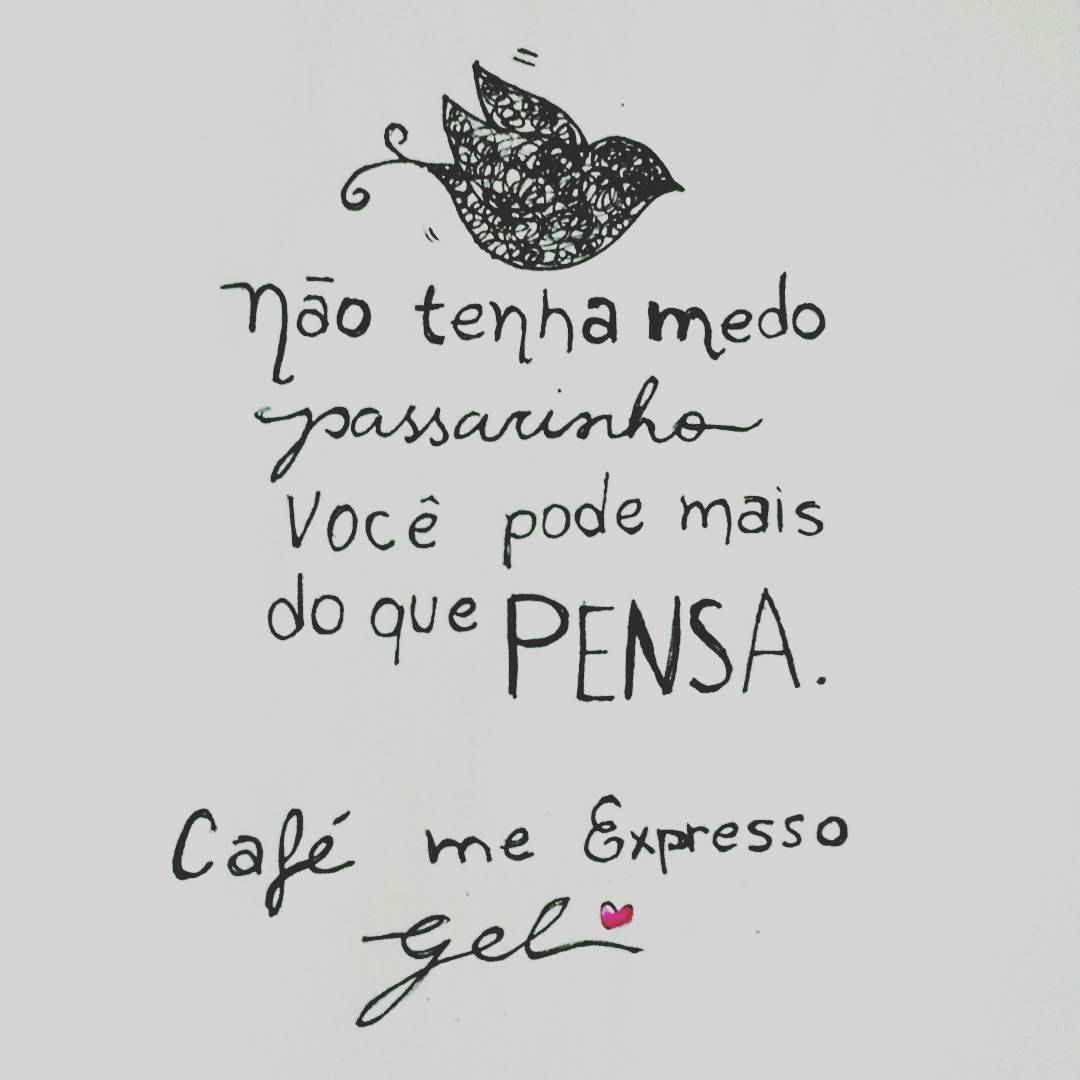 Não tenha medo
passarinho
Você pode mais
do que PENSA.
Café me Expresso
Gel